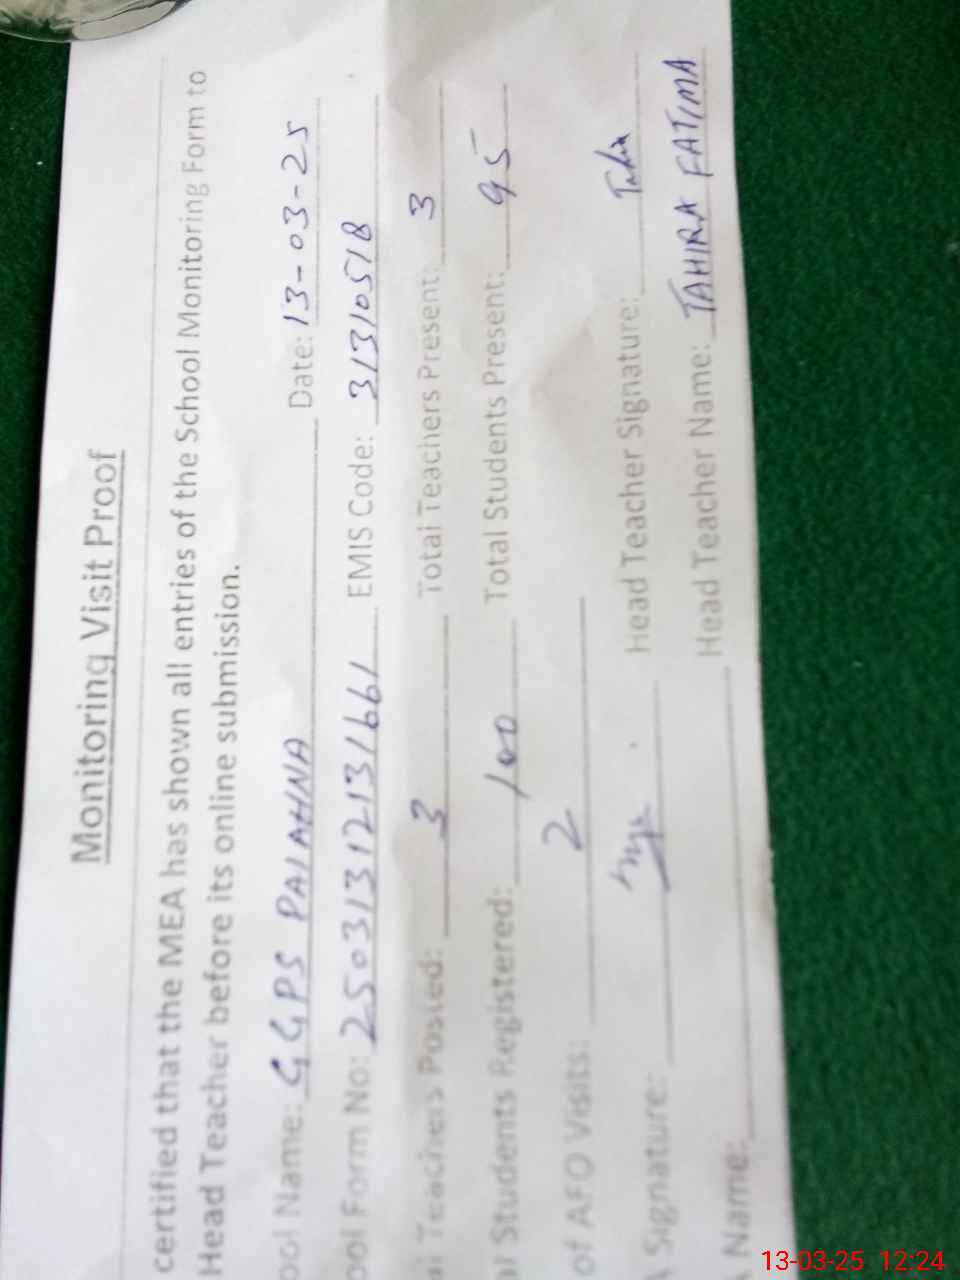 Monitoring Visit Proof
certified that the MEA has shown all entries of the School Monitoring Form to
Head Teacher before its online submission.
ool Name: GGPS PAIAHNA Date: 13-03-25
ool Form No: 25031312131661 EMIS Code: 31310518
al Teachers Posted: 3 Total Teachers Present: 3
al Students Registered: 100 Total Students Present: 95
of AFO Visits: 2
A Signature: Head Teacher Signature:
Name: Head Teacher Name: TAHIRA FATIMA
13-03-25 12:24